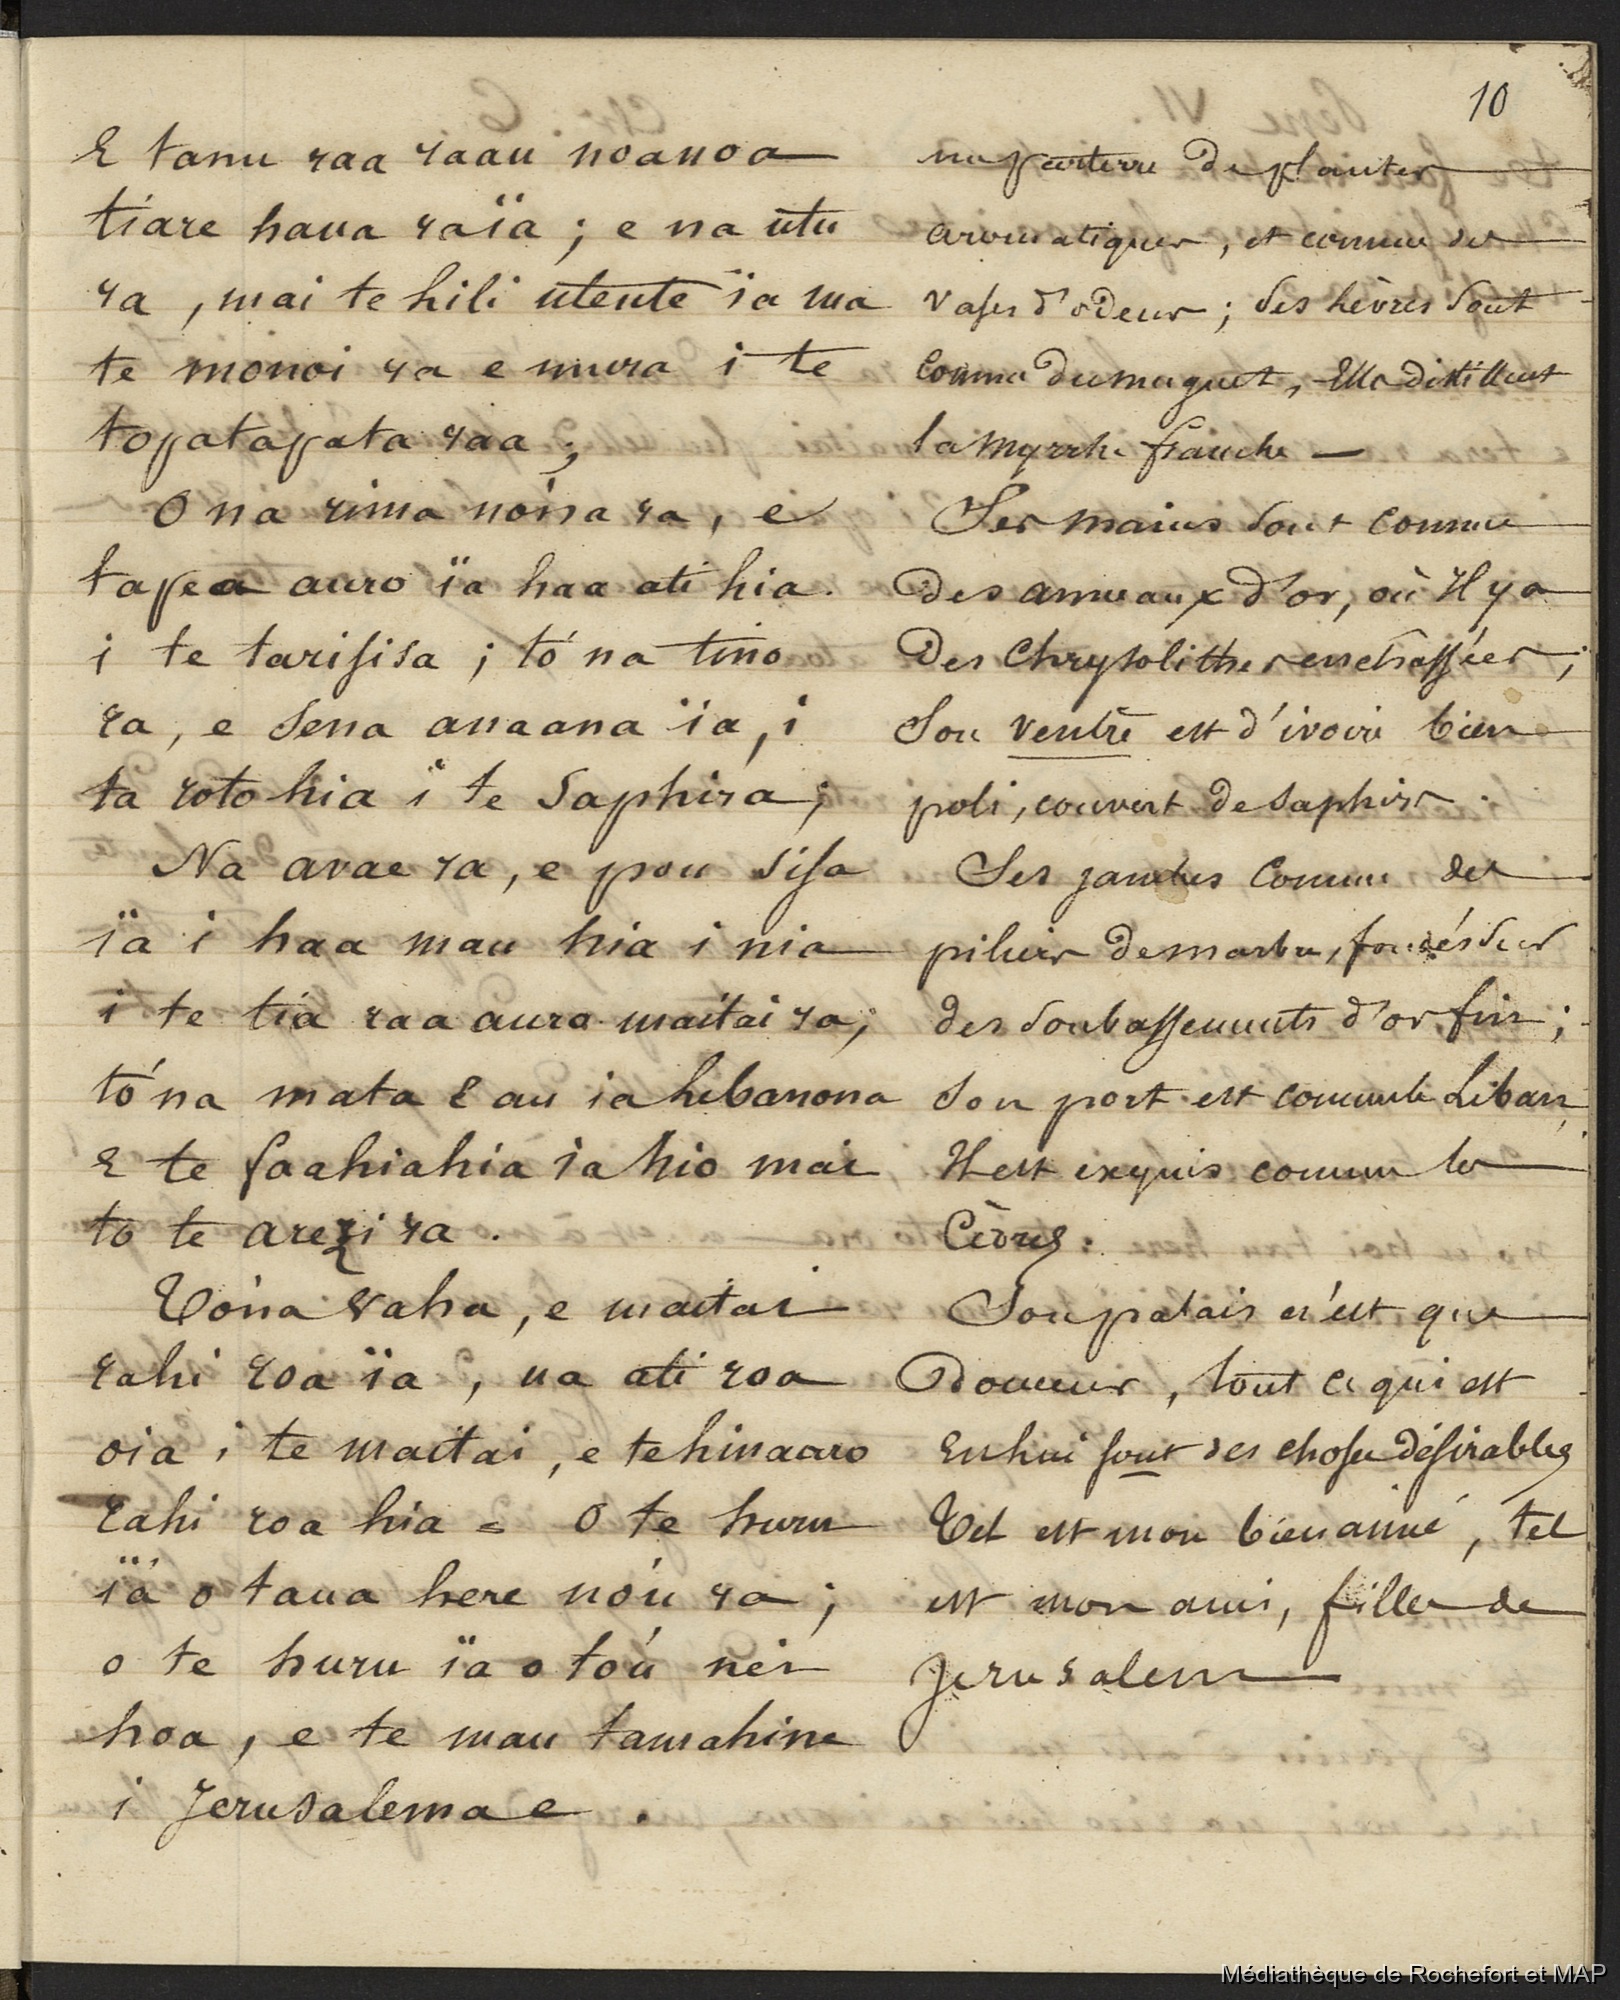 10
E tanu raa raau noanoa
tiare haua raïa ; e na utu
ra , mai te hili utente ïa ma
te monoi ra e mura i te
topatapata raa ;
O na rima nóna ra, e
tapea auro ïa haa ati hia.
i te tarisisa ; tó na tino
ra, e sena anaana ïa, i
ta roto hia i te Saphira ;
Na avae ra, e pou sisa
ïa i haa mau hia i nia
i te tia raa auro maitai ra ;
tó na mata e au ia Lebanona
E te faahiahia ia hio mai
to te arezi ra .
Tóna vaha, e maitai
rahi roa ïa , ua ati roa
oia i te maitai, e te hinaaro
rahi roa hia = O te huru
ïá o taua here nóu ra ;
o te huru ïa o tóú nei
hoa, e te mau tamahine
i Jerusalema e .
un parterre de plantes
aromatiques, et comme des
vases d'odeur ; Ses lèvres sont
comme du muguet, Elle distillent
la myrrhe franche —
Ses mains sont comme
des anneaux d'or, où Il y a
des Chrysolithes enchassées ;
Son ventre est d'ivoire bien
poli, couvert de saphirs .
Ses jambes comme des
piliers de marbre, fondés sur
des soubassements d'or fin ;
Son port est comme le Liban,
Il est exquis comme les
Cèdres .
Son palais n'est que
Douceur, tout ce qui est
En lui sont des choses désirables
Tel est mon bien aimé, tel
est mon ami, filles de
Jerusalem —
Médiathèque de Rochefort et MAP